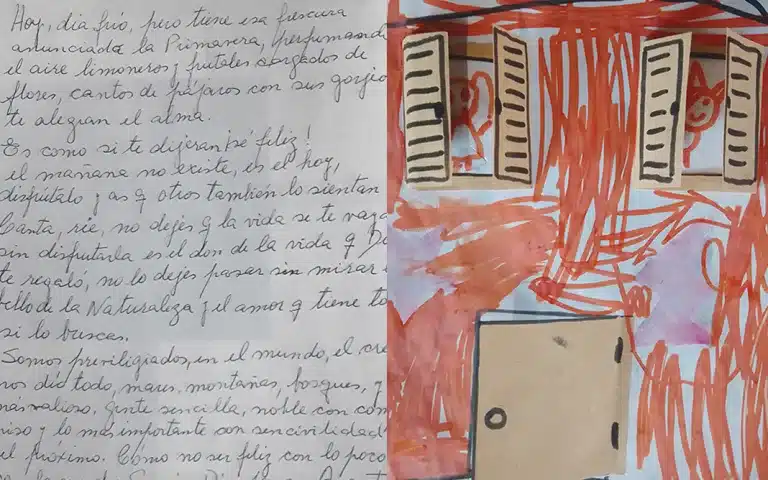 Hoy, dia frio, pero tiene esa frescura
anunciada la Primavera, perfumando
el aire limoneros y frutales cargados de
flores, cantos de pájaros con sus gorjio
te alegran el alma.
Es como si te dijeran ¡sé feliz!
el mañana no existe, es el hoy,
disfrútalo y as q otros también lo sientan
Canta, rie, no dejes q la vida se te vaya
sin disfrutarla es el don de la vida q D
te regaló, no lo dejes pasar sin mirar
bello de la Naturaliza y el amor q tiene to
si lo buscas.
Somos previligiados, en el mundo, el cre
nos dió todo, mares, montañas, bosques, y
más valioso, gente sencilla, noble con com
iso y lo mas importante con sencivilidad
el próximo. Cómo no ser feliz con lo poco